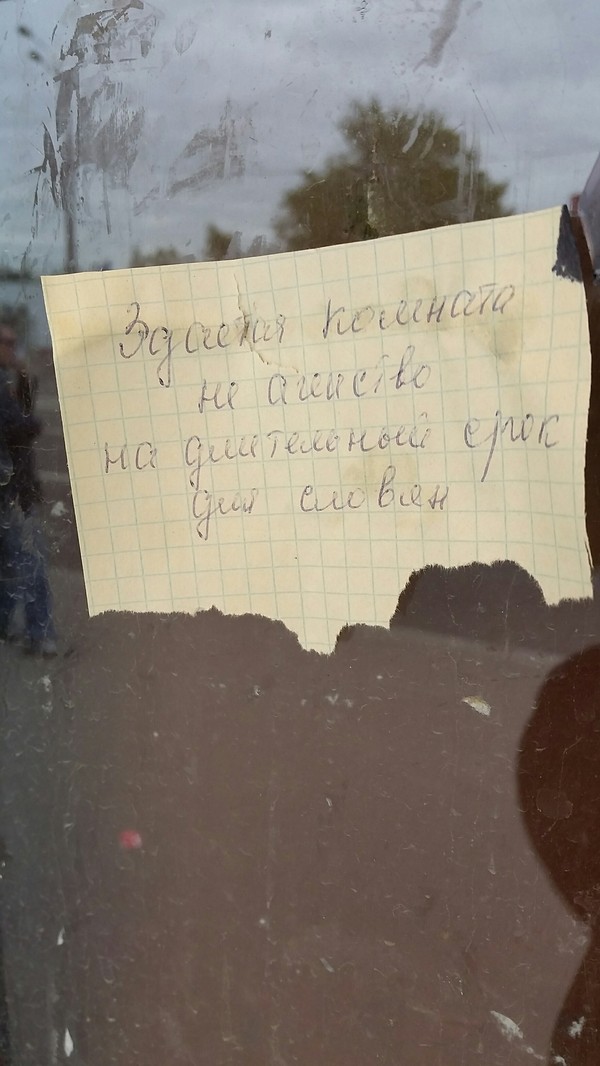 Здается комната
не агиство
на длительный срок
для словян